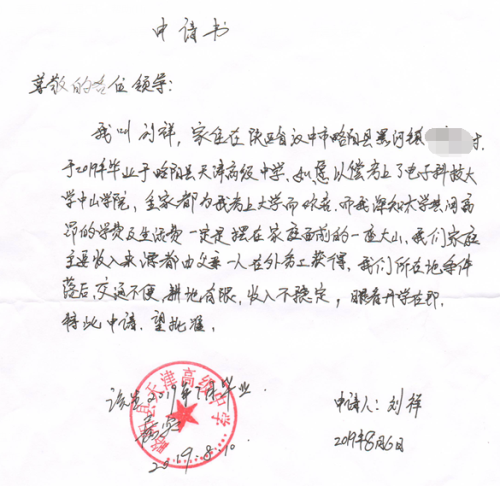 申请书
尊敬的各位领导：
我叫刘祥，家住在陕西省汉中市略阳县黑河镇 村
于2019年毕业于略阳县天津高级中学。如愿以偿考上了电子科技大
学中山学院，全家都为我考上大学而欣喜。可我深知大学费用高
昂的学费及生活费一定是摆在家庭面前的一座大山，我们家庭
主要收入来源都由父亲一人在外务工获得，我们所在地条件
落后，交通不便，耕地有限，收入不稳定，眼看开学在即，
特此申请，望批准。
略阳县天津高级中学
该生2019年7月毕业
属实
2019.8.10.
申请人：刘祥
2019年8月6日